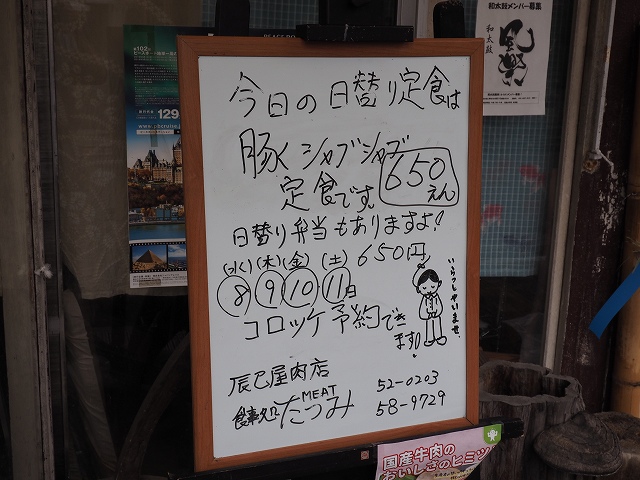 今日の日替り定食は
豚シャブシャブ
定食です。
650えん
日替り弁当もありますよ!
650円
(水)(木)(金)(土)
8 9 10 11日
コロッケ予約でき
ます!
いらっしゃいませ。
辰巳屋肉店
52-0203
食事処たつみ
MEAT
58-9729
和太鼓メンバー募集
和太鼓
国産牛肉の
おいしさのヒミツ
129